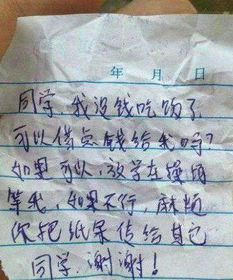 年 月 日
同学,我没钱吃饭了
可以借点钱给我吗?
如果可以,放学在强角
等我,如果不行,麻烦
你把纸条传给其它
同学,谢谢!